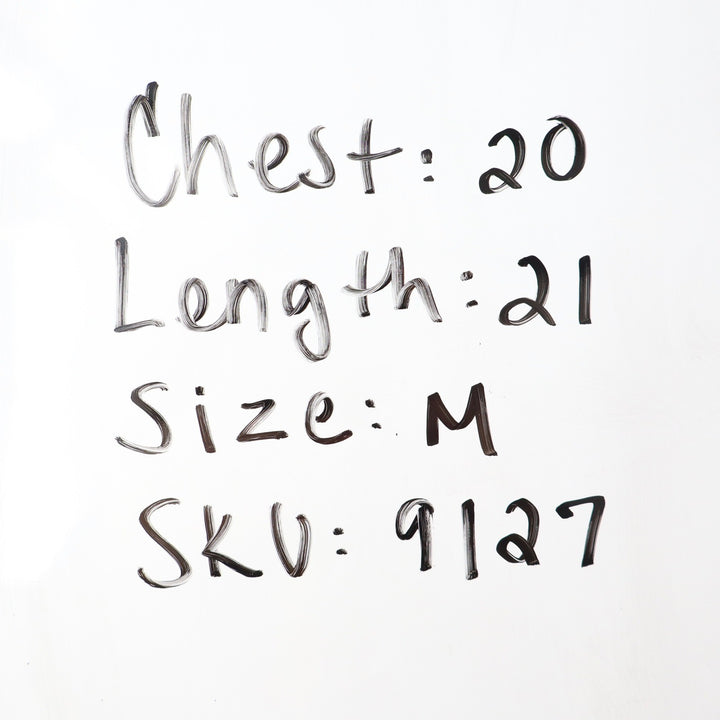 Chest: 20
Length: 21
Size: M
SKU: 9127